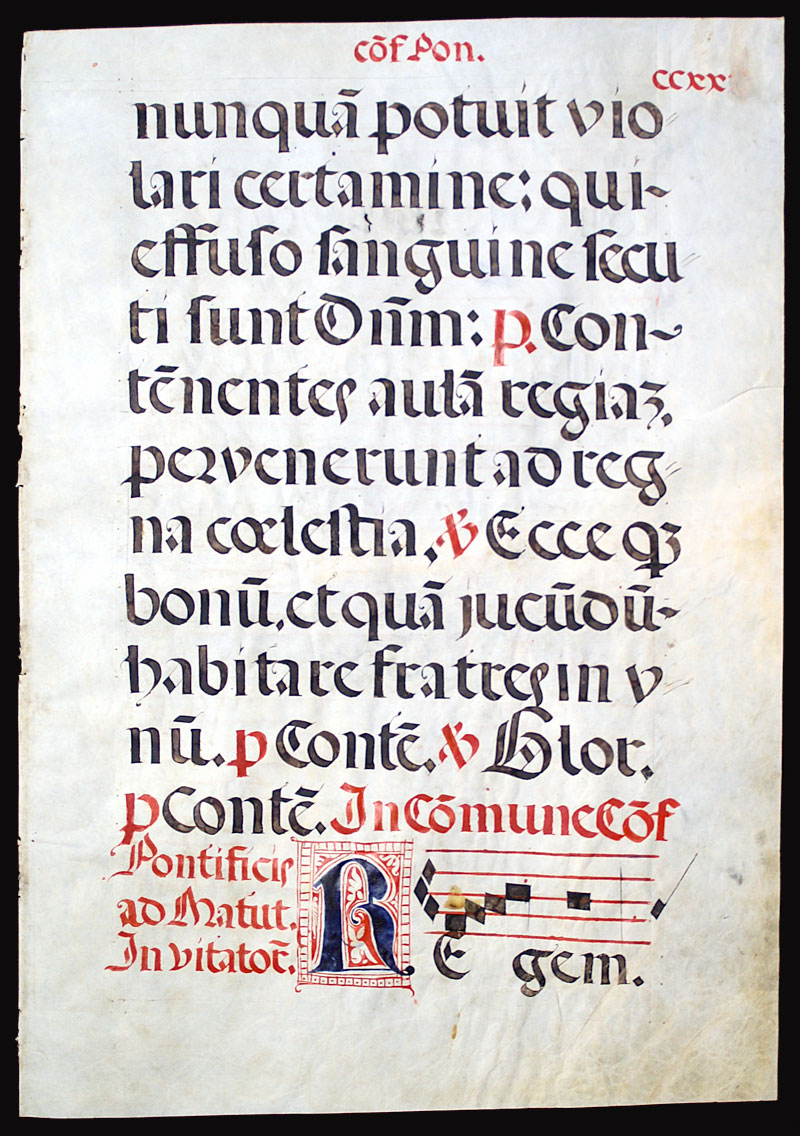 cōf Pon.
ccxx
nunquā potuit vio
lari certamine; qui
effuso sanguine secu
ti sunt Dnm̄: p. Con
tēnentes aulā regiaʒ,
pervenerunt ad reg
na cœlestia, ℣ Ecce qʒ
bonū, et quā jucūdū
habitare fratres in v
nū. p Contē. ℣ Glor.
p Contē. In Cōmune Cōf
Pontificis
ad Matut.
Invitator̄.
RE gem.